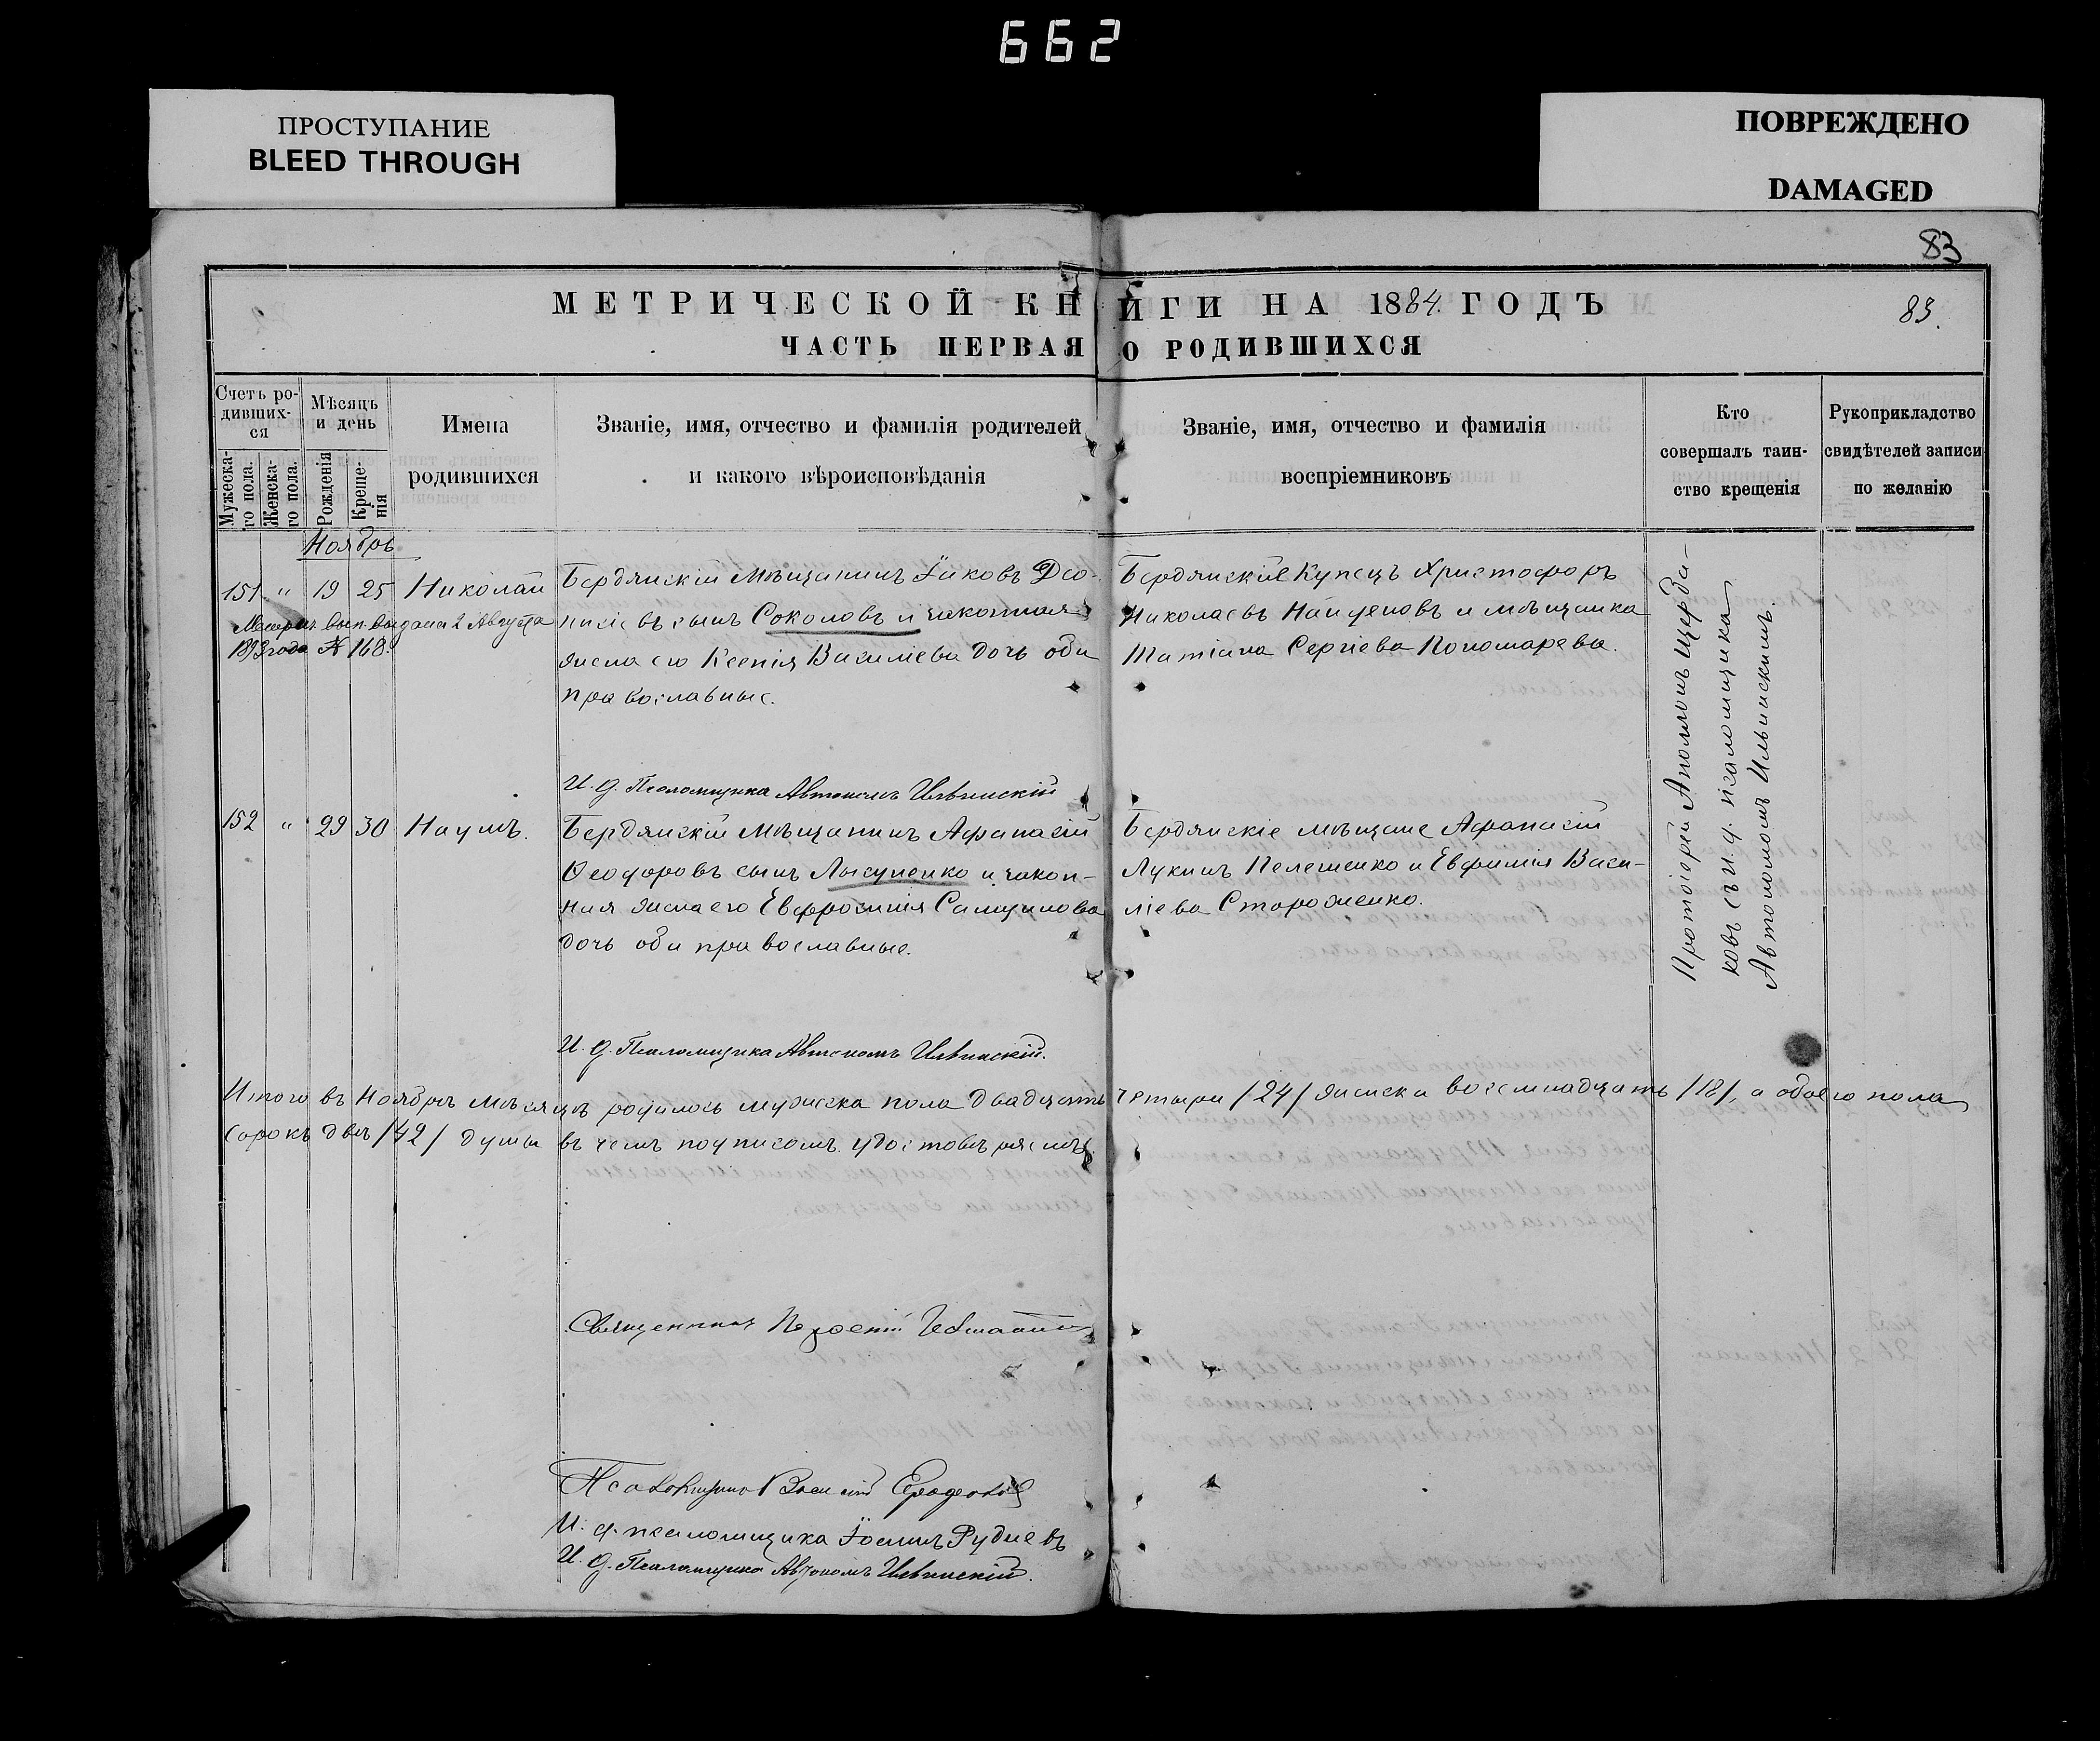 662
ПРОСТУПАНИЕ
BLEED THROUGH
ПОВРЕЖДЕНО
DAMAGED
83
МЕТРИЧЕСКОЙ КНИГИ НА 1884. ГОДЪ
83.
ЧАСТЬ ПЕРВАЯ О РОДИВШИХСЯ
Счетъ ро-
дивших-
ся
Мужеска-
го пола.
Женска-
го пола.
Мѣсяцъ
и день
Рожденія
Креще-
нія
Имена
родившихся
Званіе, имя, отчество и фамилія родителей
и какого вѣроисповѣданія
Званіе, имя, отчество и фамилія
воспріемниковъ
Кто
совершалъ таин-
ство крещенія
Рукоприкладство
свидѣтелей записи
по желанію
Ноябрь
151 " 19 25 Николай
Метрич. вып. выдана 2 Августа
1893 года № 168.
Бердянскій Мѣщанинъ Іаковъ Део-
нисіевъ сынъ Соколовъ и законная
жена его Ксенія Василіева дочь оба
православные.
Бердянскій Купецъ Христофоръ
Николаевъ Найденовъ и мѣщанка
Татіана Сергіева Пономарева.
И. д. Псаломщика Автономъ Ильинскій
152 " 29 30 Наумъ.
Бердянскій Мѣщанинъ Афанасій
Ѳеодоровъ сынъ Лысупенко и закон-
ная жена его Евфросинія Самуилова
дочь оба православные.
Бердянскіе мѣщане Афанасій
Лукинъ Пелешенко и Евфимія Васи-
ліева Стороженко.
И. д. Псаломщика Автономъ Ильинскій.
Протоіерей Аполлонъ Щерба-
ковъ съ и. д. псаломщика
Автономомъ Ильинскимъ.
Итого въ Ноябрѣ мѣсяцѣ родилось мужеска пола двадцать четыри /24/ женска восемнадцать /18/, а обоего пола
сорокъ двѣ /42/ души въ чемъ подписомъ удостовѣряемъ.
Священникъ
Псаломщикъ Василій
И. д. псаломщика Іоаннъ Рудневъ
И. д. Псаломщика Автономъ Ильинскій.